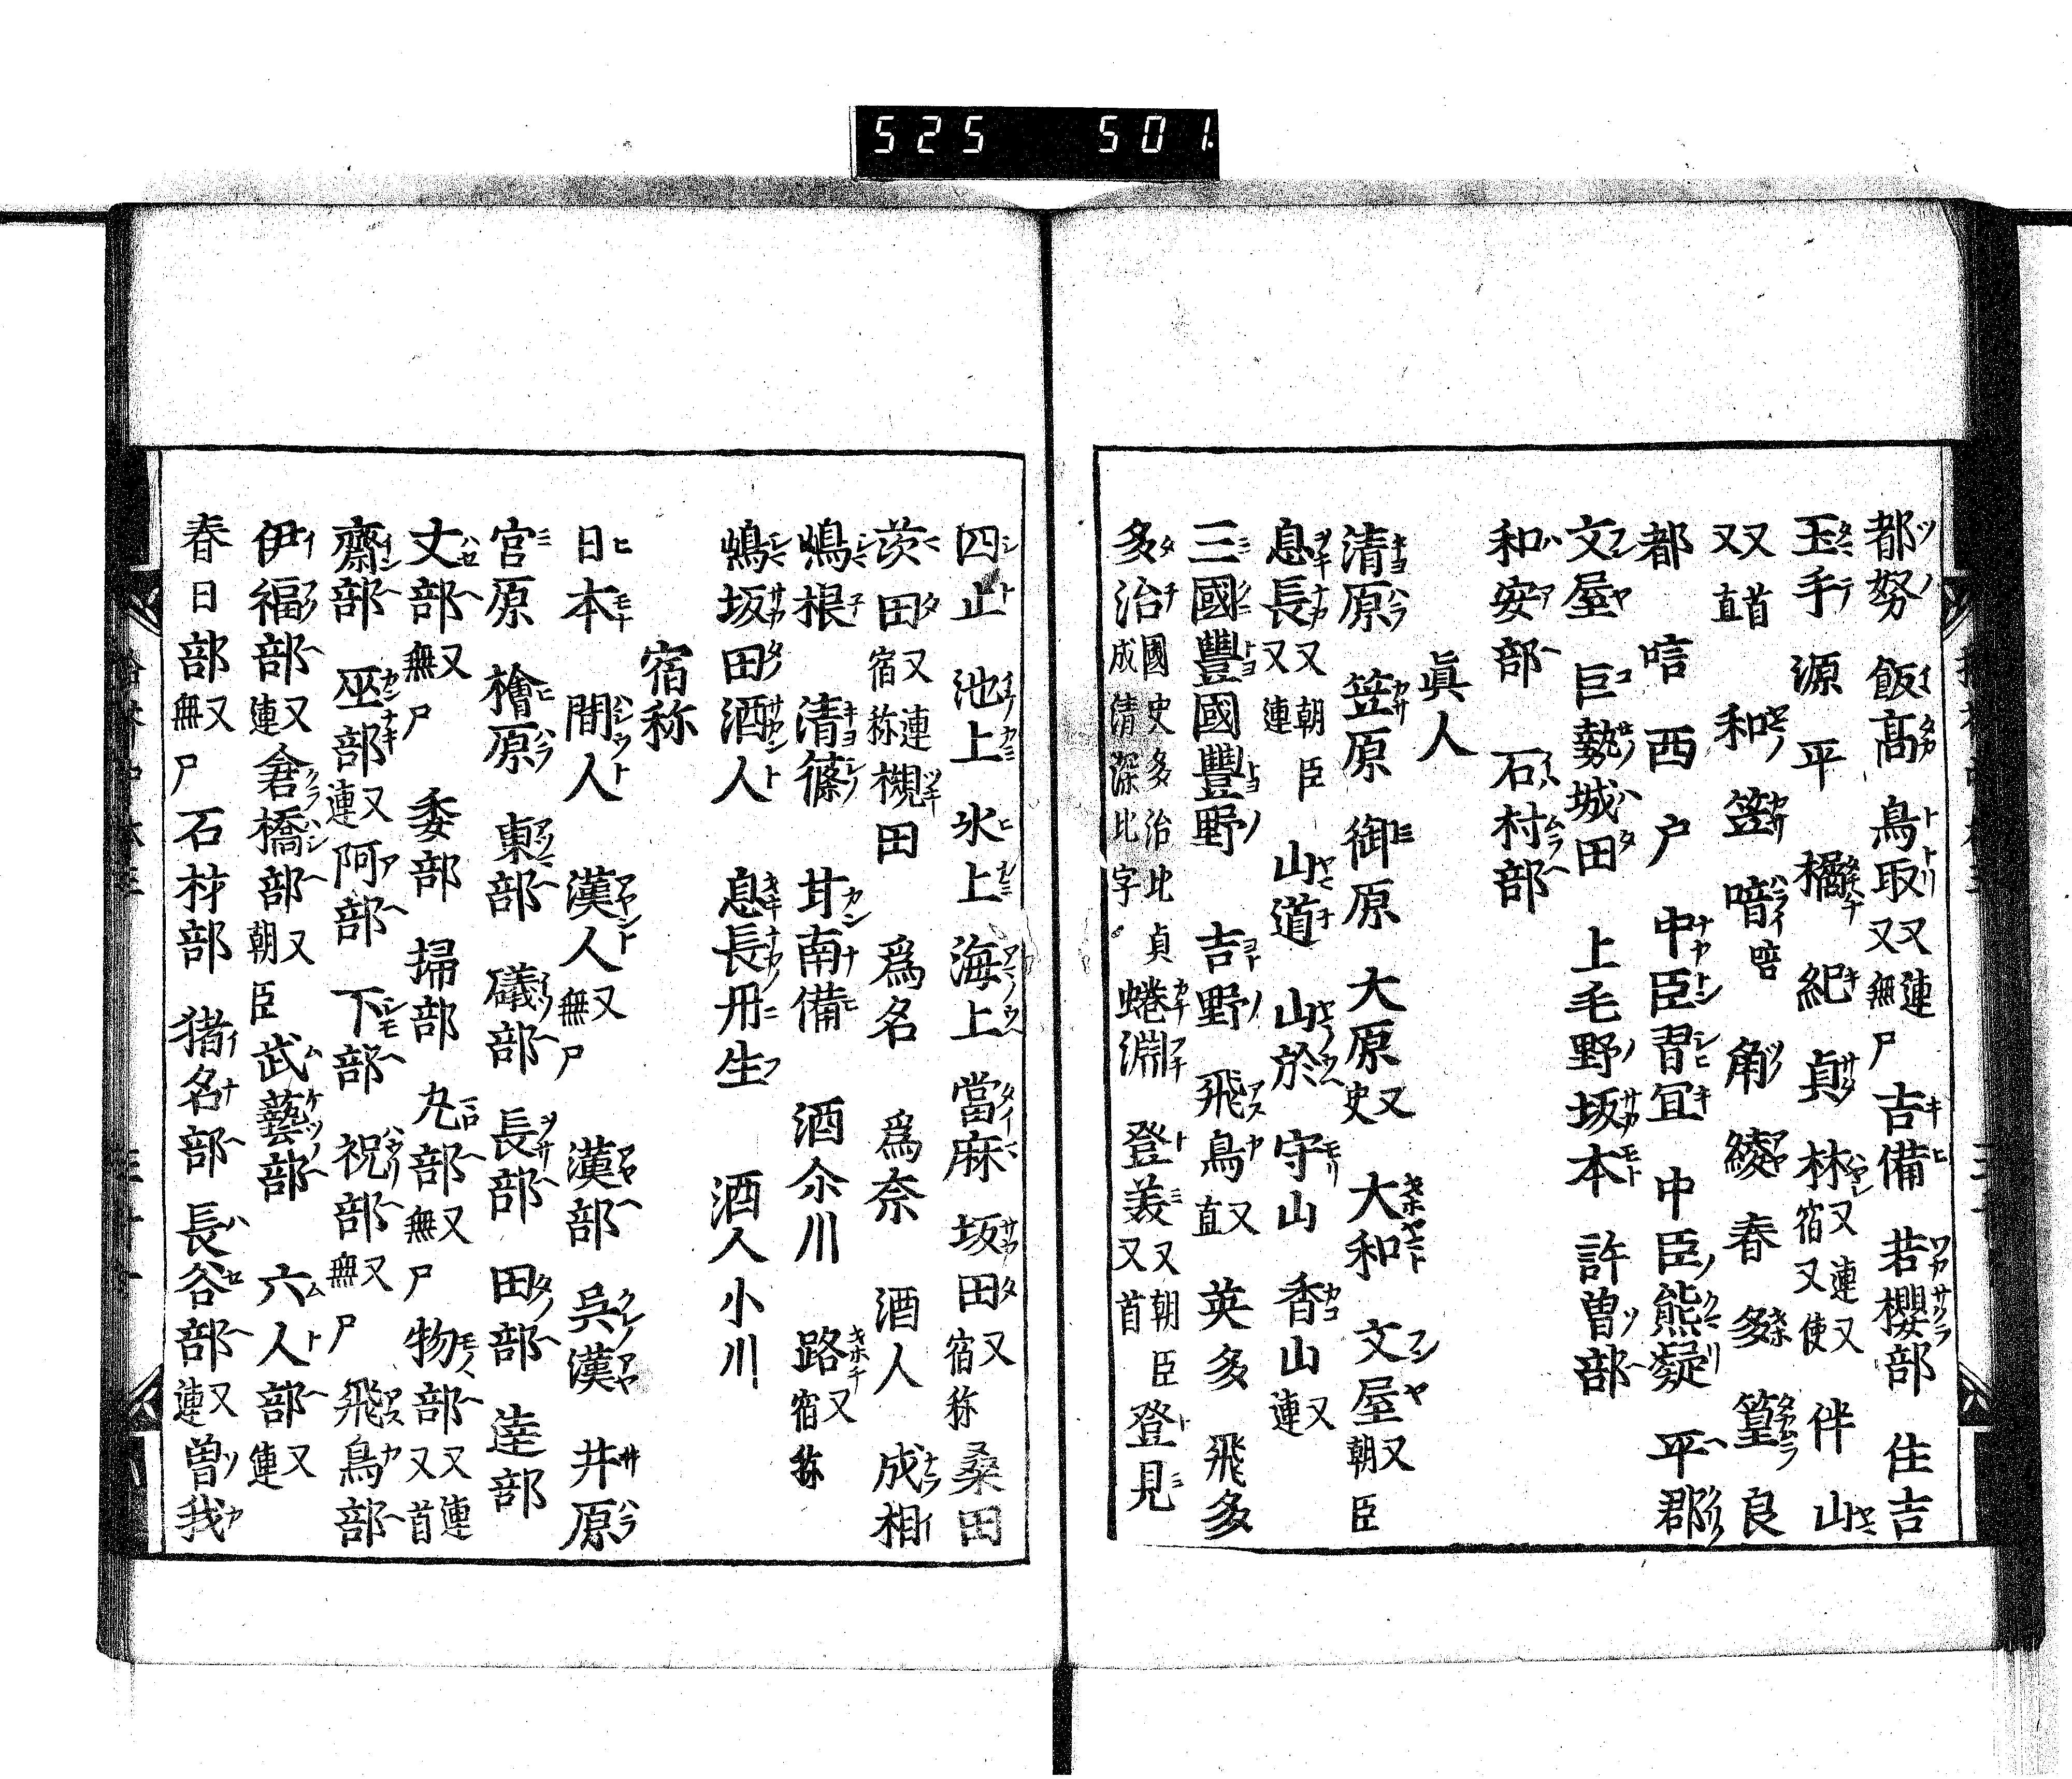 525 501
都努 飯高 鳥取又連又無尸 吉備 若櫻部 住吉
玉手 源 平 橘 紀 貞 林又連又宿又使 伴 山
又首又直 和 笠 唶 角 綾 春 多 篁 良
都 唔 西 户 中臣習宜 中臣熊凝 平郡
文屋 巨勢城田 上毛野坂本 許曽部
和安部 石村部
眞人
清原 笠原 御原 大原又史 大和 文屋又朝臣
息長又朝臣又連 山道 山於 守山 香山又連
三國豐國豐野 吉野 飛鳥又直 英多 飛多
多治國史多治比貞成清深比字 蜷淵 登美又朝臣又首 登見
四止 池上 氷上 海上 當麻 坂田又宿称 桑田
茨田又連宿称 槻田 爲名 爲奈 酒人 成相
嶋根 清篠 甘南備 酒尒川 路又宿称
嶋坂田酒人 息長丹生 酒人小川
宿称
日本 間人 漢人又無尸 漢部 呉漢 井原
宮原 檜原 東部 礒部 長部 田部 達部
丈部又無尸 委部 掃部 丸部又無尸 物部又連又首
齋部 巫部又連 阿部 下部 祝部又無尸 飛鳥部
伊福部又連 倉橋部又朝臣 武藝部 六人部又連
春日部又無尸 石村部 猪名部 長谷部又連 曽我